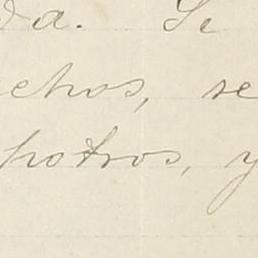 da. Se
echos, se
potros, y